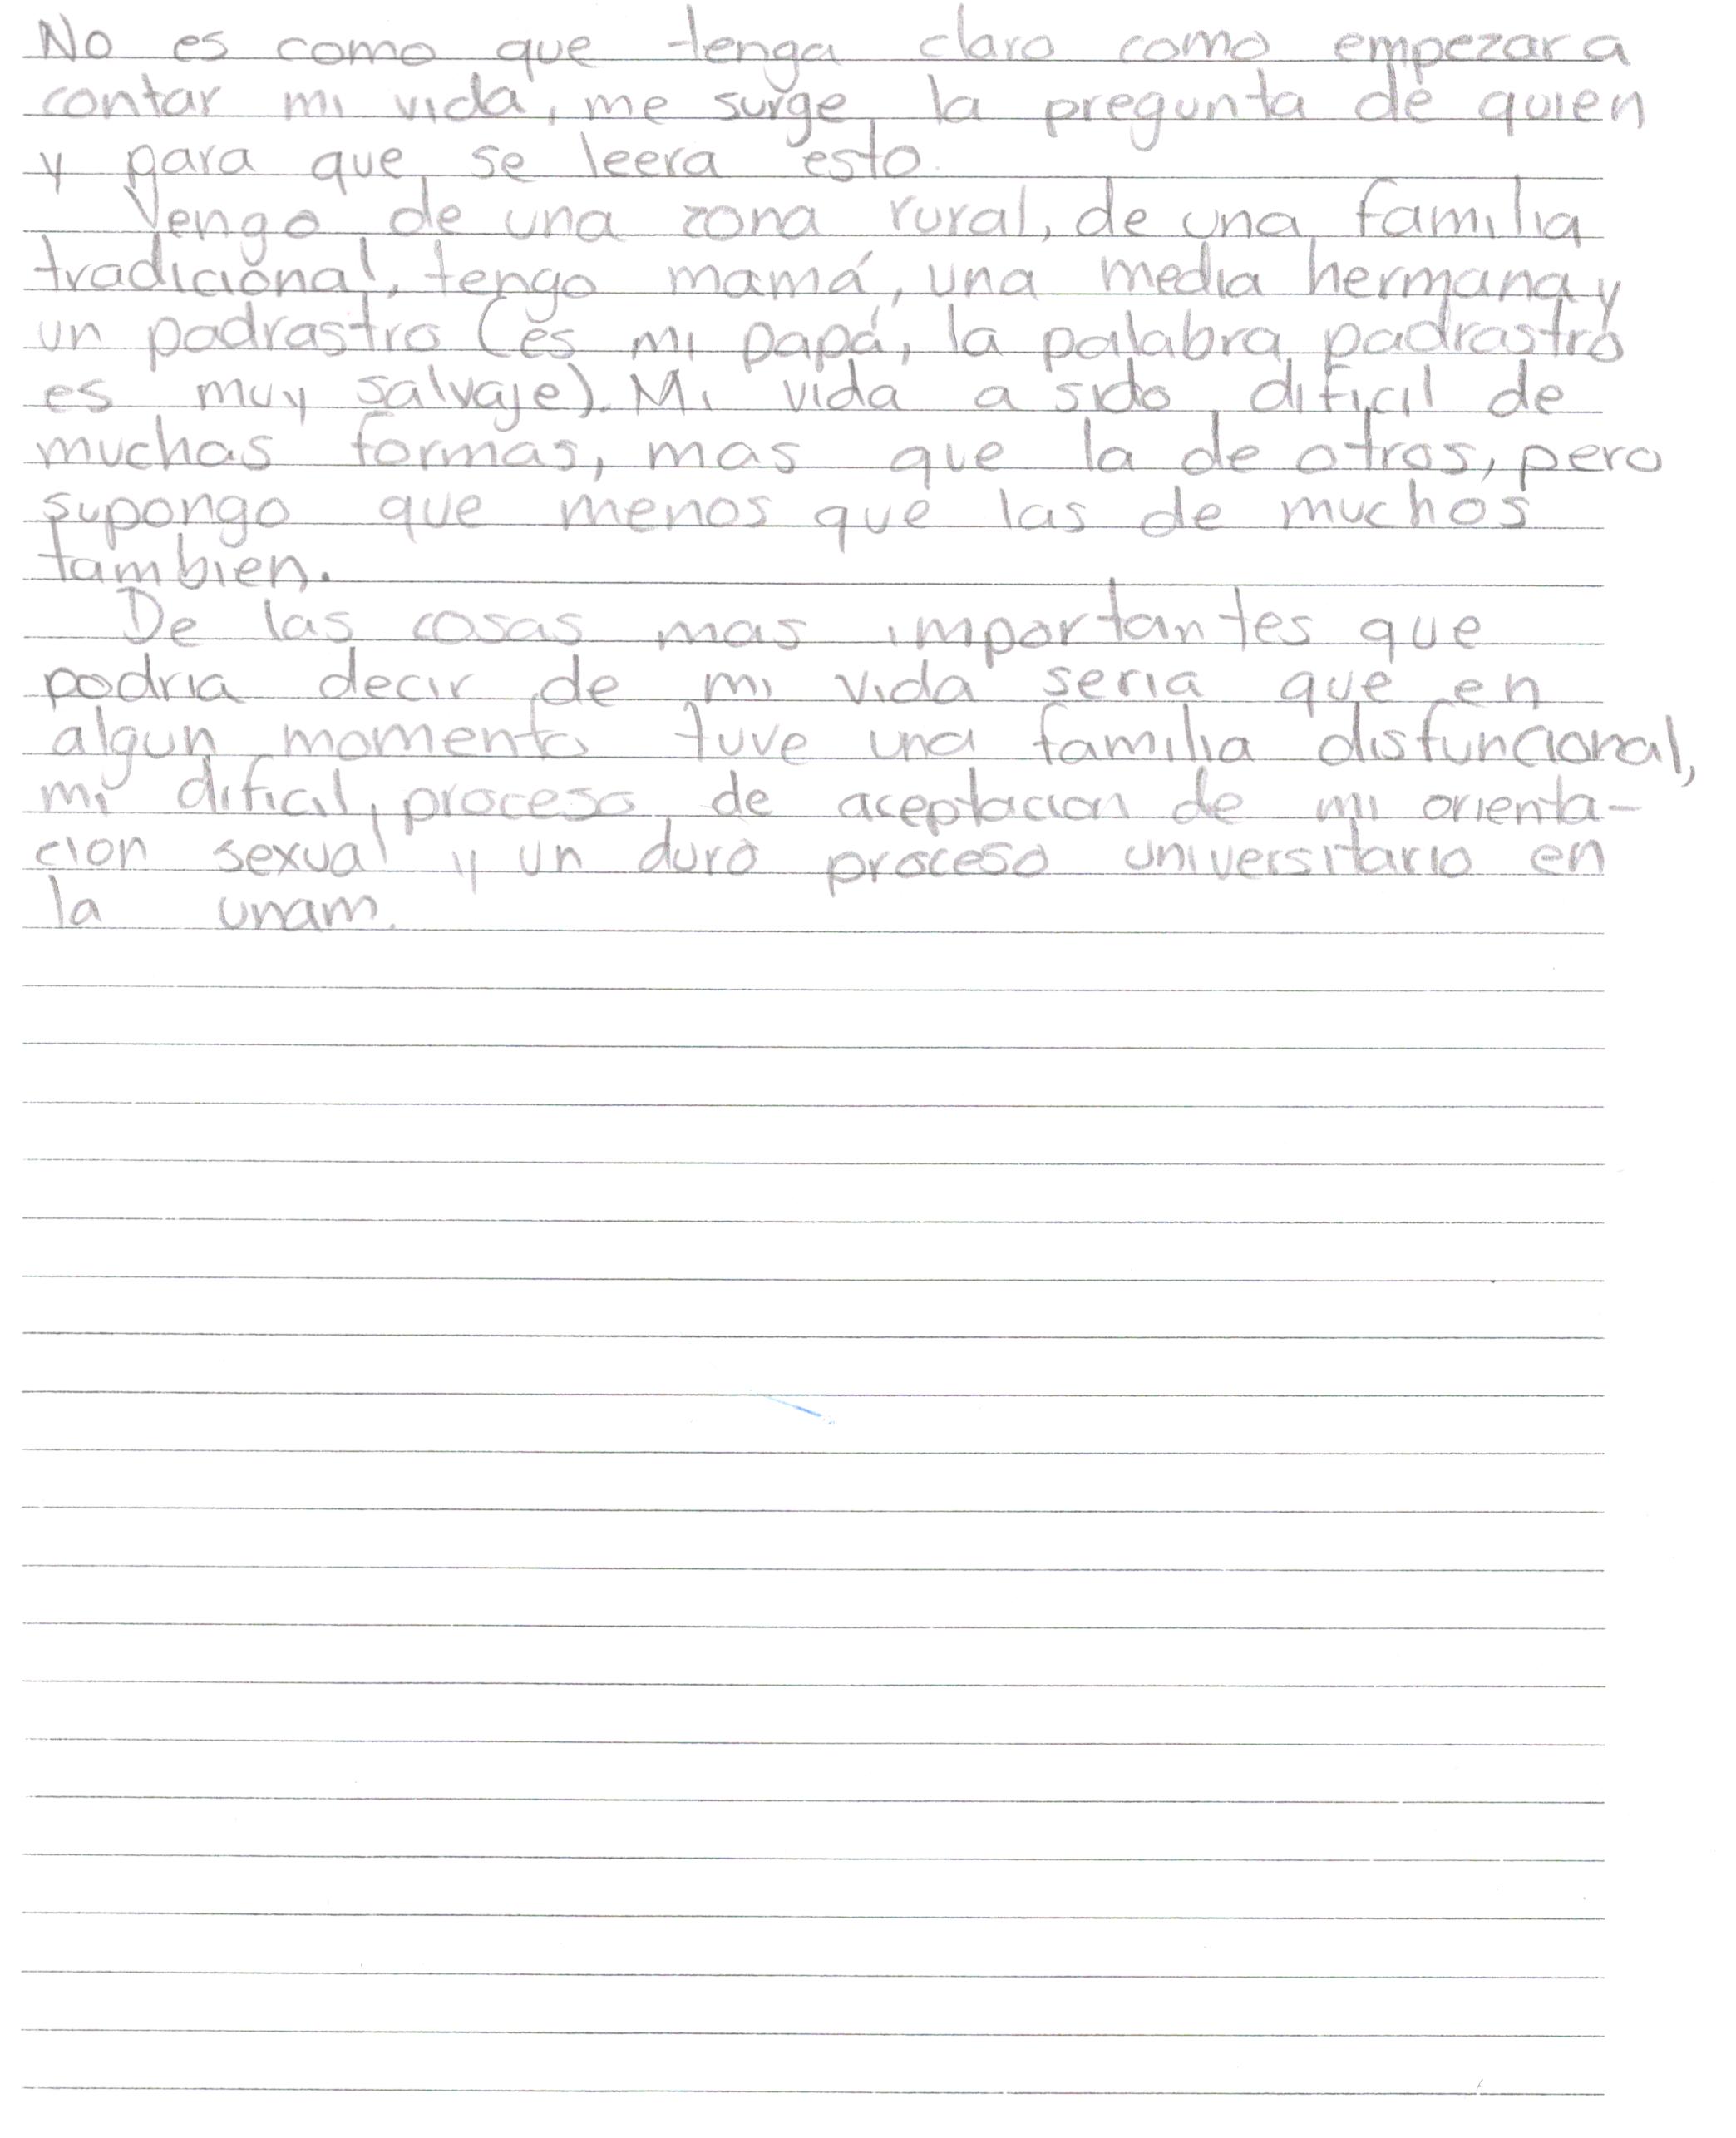 No es como que tenga claro como empezar a
contar mi vida, me surge la pregunta de quien
y para que se leera esto.
Vengo de una zona rural, de una familia
tradicional, tengo mamá, una media hermana y
un padrastro (es mi papá, la palabra padrastro
es muy salvaje). Mi vida a sido dificil de
muchas formas, mas que la de otros, pero
supongo que menos que las de muchos
tambien.
De las cosas mas importantes que
podria decir de mi vida seria que en
algun momento tuve una familia disfuncional,
mi dificil proceso de aceptacion de mi orienta-
cion sexual y un duro proceso universitario en
la unam.